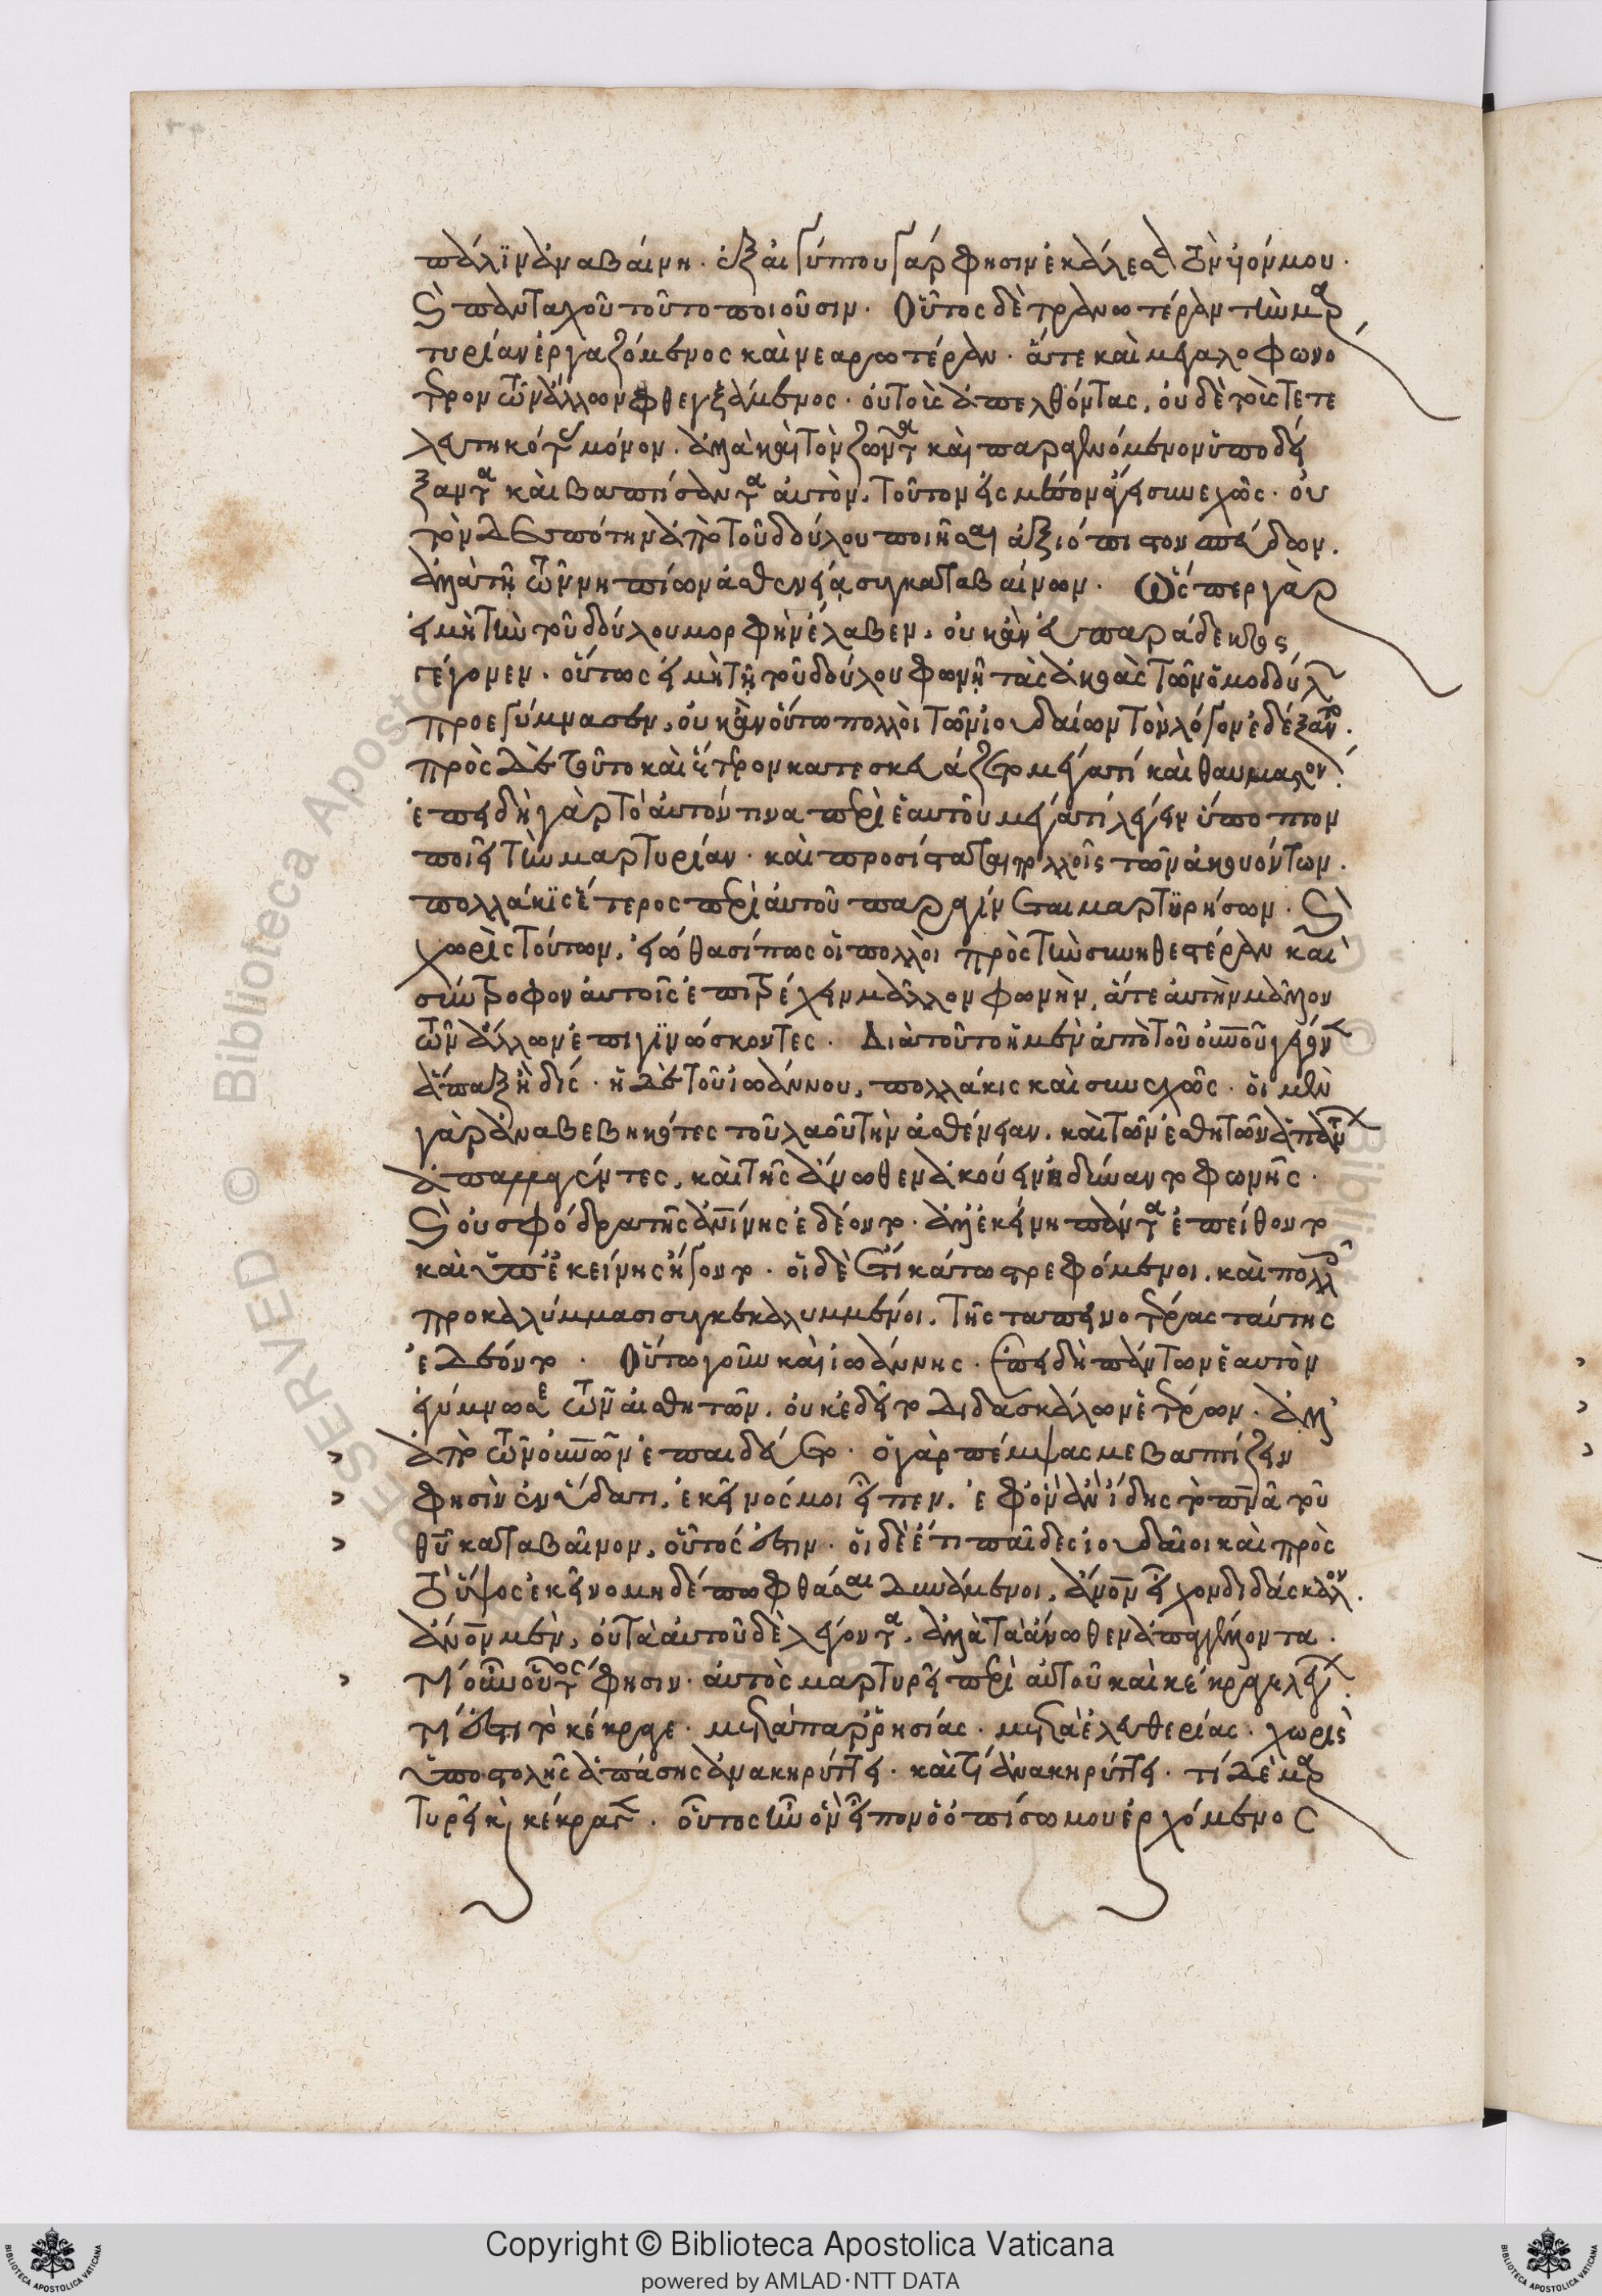 πάλιν ἀναβαίνῃ. ἐξ αἰγύπτου γάρ φησιν ἐκάλεσα τὸν υἱόν μου.
καὶ πανταχοῦ τοῦτο ποιοῦσιν. Οὗτος δὲ τρανωτέραν τὴν μαρ
τυρίαν ἐργαζόμενος καὶ νεαρωτέραν. ἅτε καὶ μεγαλοφωνό
τερον τῶν ἄλλων φθεγξάμενος. οὐ τοὺς ἀπελθόντας, οὐδὲ τοὺς τετε
λευτηκότας μόνον. ἀλλὰ καὶ τὸν ζῶντα καὶ παραγενόμενον ὑποδεί
ξαντα καὶ βαπτίσαντα αὐτὸν, τοῦτον εἰς μέσον ἄγει συνεχῶς. οὐ
τὸν δεσπότην ἀπὸ τοῦ δούλου ποιῆσαι ἀξιόπιστον σπεύδων.
ἀλλὰ τῇ τῶν νηπίων ἀσθενείᾳ συγκαταβαίνων. Ὥσπερ γὰρ
εἰ μὴ τὴν τοῦ δούλου μορφὴν ἔλαβεν, οὐκ ἂν εὐπαράδεκτος
γέγονεν. οὕτως εἰ μὴ τῇ τοῦ δούλου φωνῇ τὰς ἀκοὰς τῶν ὁμοδούλων
προεγύμνασεν, οὐκ ἂν οὕτω πολλοὶ τῶν ἰουδαίων τὸν λόγον ἐδέξαντο.
πρὸς δὲ τοῦτο καὶ ἕτερον κατεσκευάζετο μέγα τί καὶ θαυμαστόν.
ἐπειδὴ γὰρ τὸ αὐτόν τινα περὶ ἑαυτοῦ μέγα τί λέγειν ὕποπτον
ποιεῖ τὴν μαρτυρίαν. καὶ προσίσταται πολλοῖς τῶν ἀκουόντων.
πολλάκις ἕτερος περὶ αὐτοῦ παραγίνεται μαρτυρήσων. καὶ
χωρὶς τούτων, εἰώθασί πως οἱ πολλοὶ πρὸς τὴν συνηθεστέραν καὶ
σύντροφον αὐτοῖς ἐπιτρέχειν μᾶλλον φωνὴν, ἅτε αὐτὴν μᾶλλον
τῶν ἄλλων ἐπιγινώσκοντες. Διὰ τοῦτο ἡ μὲν ἀπὸ τοῦ οὐνοῦ γέγονεν
ἅπαξ ἢ δίς. ἡ δὲ τοῦ ἰωάννου, πολλάκις καὶ συνεχῶς. οἱ μὲν
γὰρ ἀναβεβηκότες τοῦ λαοῦ τὴν ἀσθένειαν, καὶ τῶν αἰσθητῶν ἁπάντων
ἀπαλλαγέντες, καὶ τῆς ἄνωθεν ἀκούειν ἠδύναντο φωνῆς.
καὶ οὐ σφόδρα τῆς ἀνίνης ἐδέοντο. ἀλλ' ἐκείνῃ πάντα ἐπείθοντο
καὶ ὑπ' ἐκείνης ἤγοντο. οἱ δὲ ἔτι κάτω στρεφόμενοι, καὶ πολλοῖς
προκαλύμμασι συγκεκαλυμμένοι, τῆς ταπεινοτέρας ταύτης
ἐδέοντο. Οὕτω γοῦν καὶ ἰωάννης. ἐπειδὴ πάντων ἑαυτὸν
ἐγύμνωσε τῶν αἰσθητῶν, οὐκ ἐδεῖτο διδασκάλων ἑτέρων. ἀλλ'
ἀπὸ τῶν οὐνῶν ἐπαιδεύετο. ὁ γὰρ πέμψας με βαπτίζειν
φησὶν ἐν ὕδατι, ἐκεῖνός μοι εἶπεν, ἐφ' ὃν ἂν ἴδῃς τὸ πνα τοῦ
θυ καταβαῖνον, οὗτός ἐστιν. οἱ δὲ ἔτι παῖδες ἰουδαῖοι καὶ πρὸς
τὸ ὕψος ἐκεῖνο μηδέπω φθάσαι δυνάμενοι, ἀνον εἶχον διδάσκαλον.
ἀνον μὲν, οὐ τὰ αὐτοῦ δὲ λέγοντα, ἀλλὰ τὰ ἄνωθεν ἀπαγγέλλοντα.
τί οὖν οὗτός φησιν. αὐτὸς μαρτυρεῖ περὶ αὐτοῦ καὶ κέκραγε λέγων.
τί ἐστι τὸ κέκραγε. μετὰ παρρησίας. μετὰ ἐλευθερίας. χωρὶς
ὑποστολῆς ἁπάσης ἀνακηρύττει. καὶ τί ἀνακηρύττει. τί δὲ μαρ
τυρεῖ κ κέκραγεν. οὗτος ἦν ὃν εἶπον ὁ ὀπίσω μου ἐρχόμενος
Copyright © Biblioteca Apostolica Vaticana
powered by AMLAD·NTT DATA